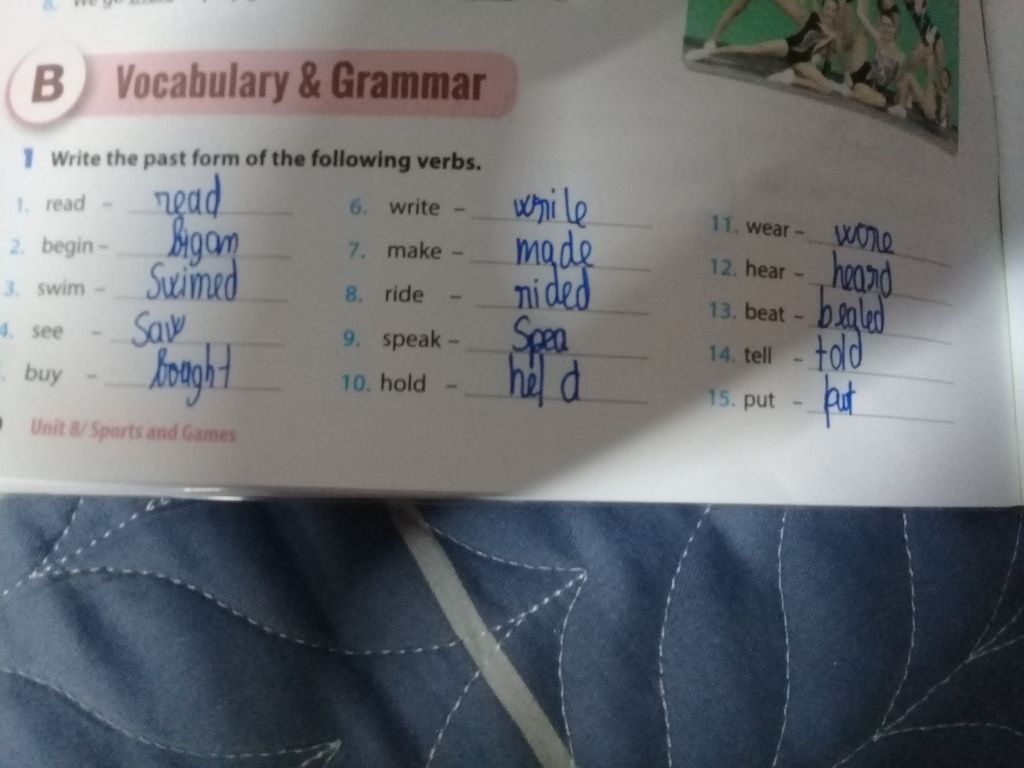 B Vocabulary & Grammar
1 Write the past form of the following verbs.
1. read - read
2. begin - bigam
3. swim - Swimed
4. see - Saw
buy - bought
6. write - write
7. make - made
8. ride - rided
9. speak - Spea
10. hold - held
11. wear - wore
12. hear - heard
13. beat - beated
14. tell - told
15. put - put
Unit 8/ Sports and Games